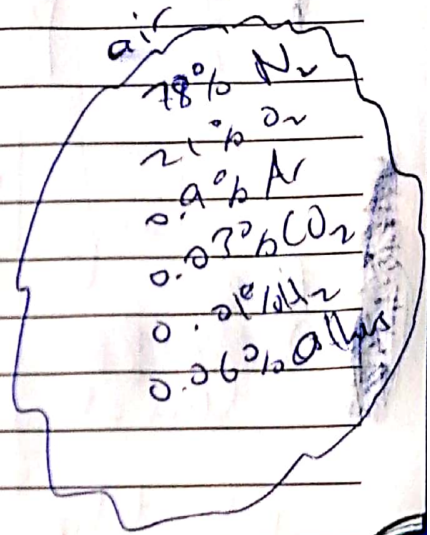 air
78% N₂
21% O₂
0.9% Ar
0.03% CO₂
0.01% H₂
0.06% others